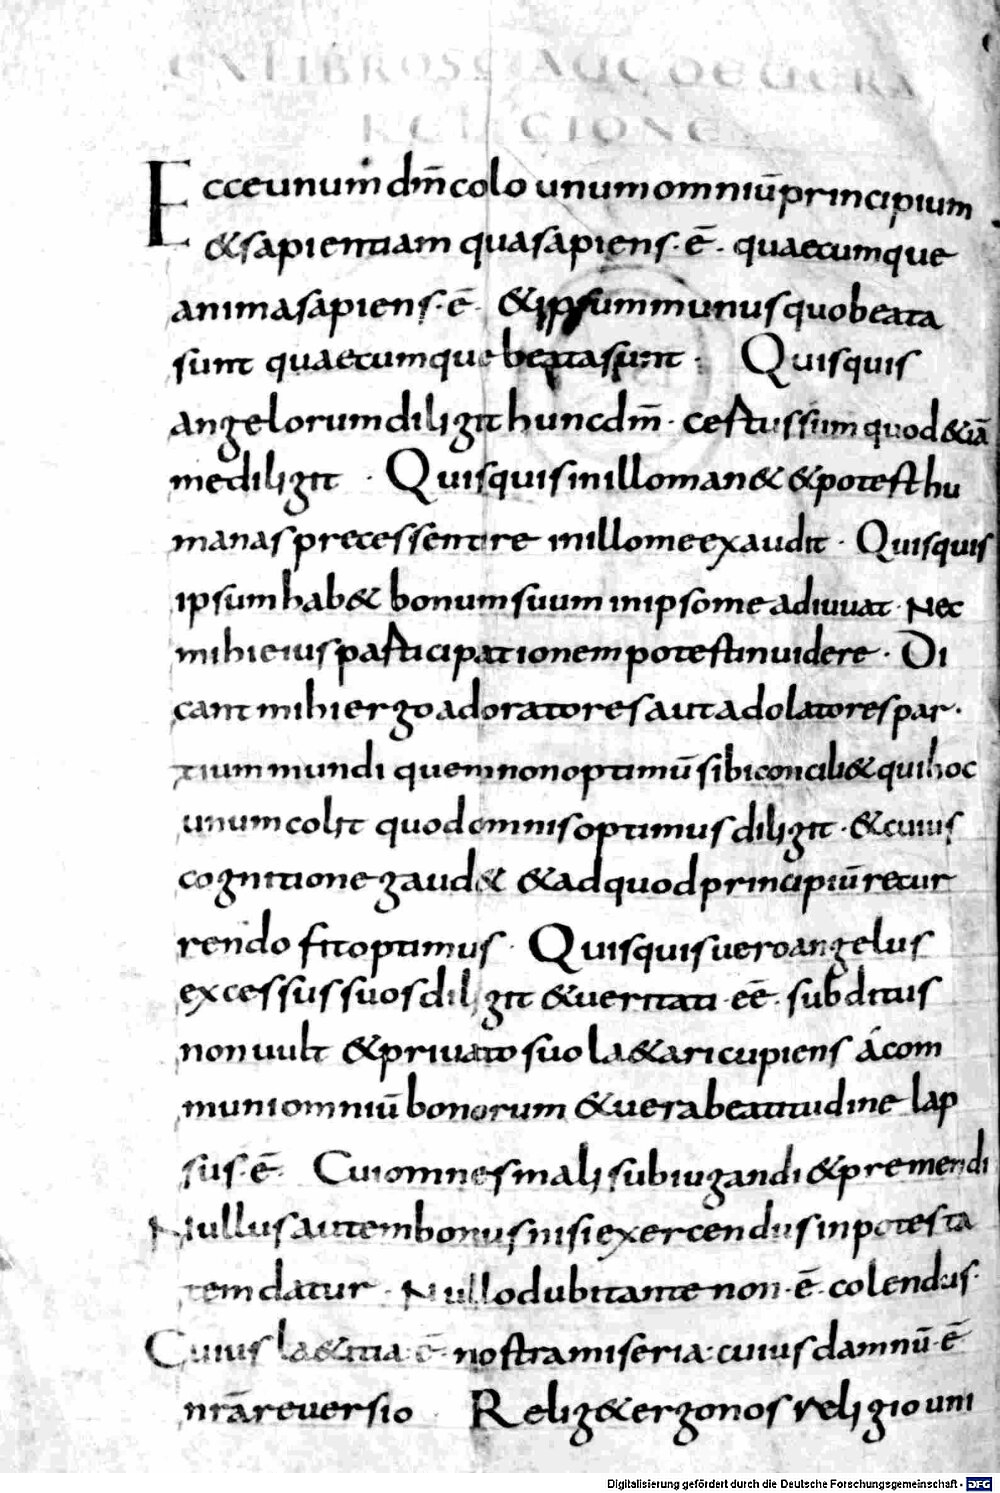 EX LIBROS SCI AUG DE UERA
RELIGIONE
Ecce unum dm̄ colo unum omniū principium
& sapientiam qua sapiens · ē · quaecumque
anima sapiens · ē · & ipsum munus quo beata
sunt quaecumque beata sunt · Quisquis
angelorum diligit hunc dm̄ · certus sum quod &iā
me diligit · Quisquis in illo man& & potest hu
manas precessentire in illo me exaudit · Quisquis
ipsum hab& bonum suum in ipso me adiuuat · Nec
mihi eius participationem potest inuidere · Di
cant mihi ergo adoratores aut adolatores par·
tium mundi quem non optimū sibi concili& qui hoc
unum colit quod omnis optimus diligit · & cuius
cognitione gaud& & ad quod principiū recur
rendo fit optimus · Quisquis uero angelus
excessus suos diligit & ueritati · eē · subditus
non uult & priuato suo la&ari cupiens á com
muni omniū bonorum & uera beatitudine lap
sus · ē · Cui omnes mali subiugandi & premendi
Nullus autem bonus nisi exercendus in potesta
tem datur · Nullo dubitante non · ē · colendus ·
Cuius la&itia · ē · nostra miseria : cuius damnū · ē
nr̄a reuersio Relig& ergo nos religio uni
Digitalisierung gefördert durch die Deutsche Forschungsgemeinschaft - DFG